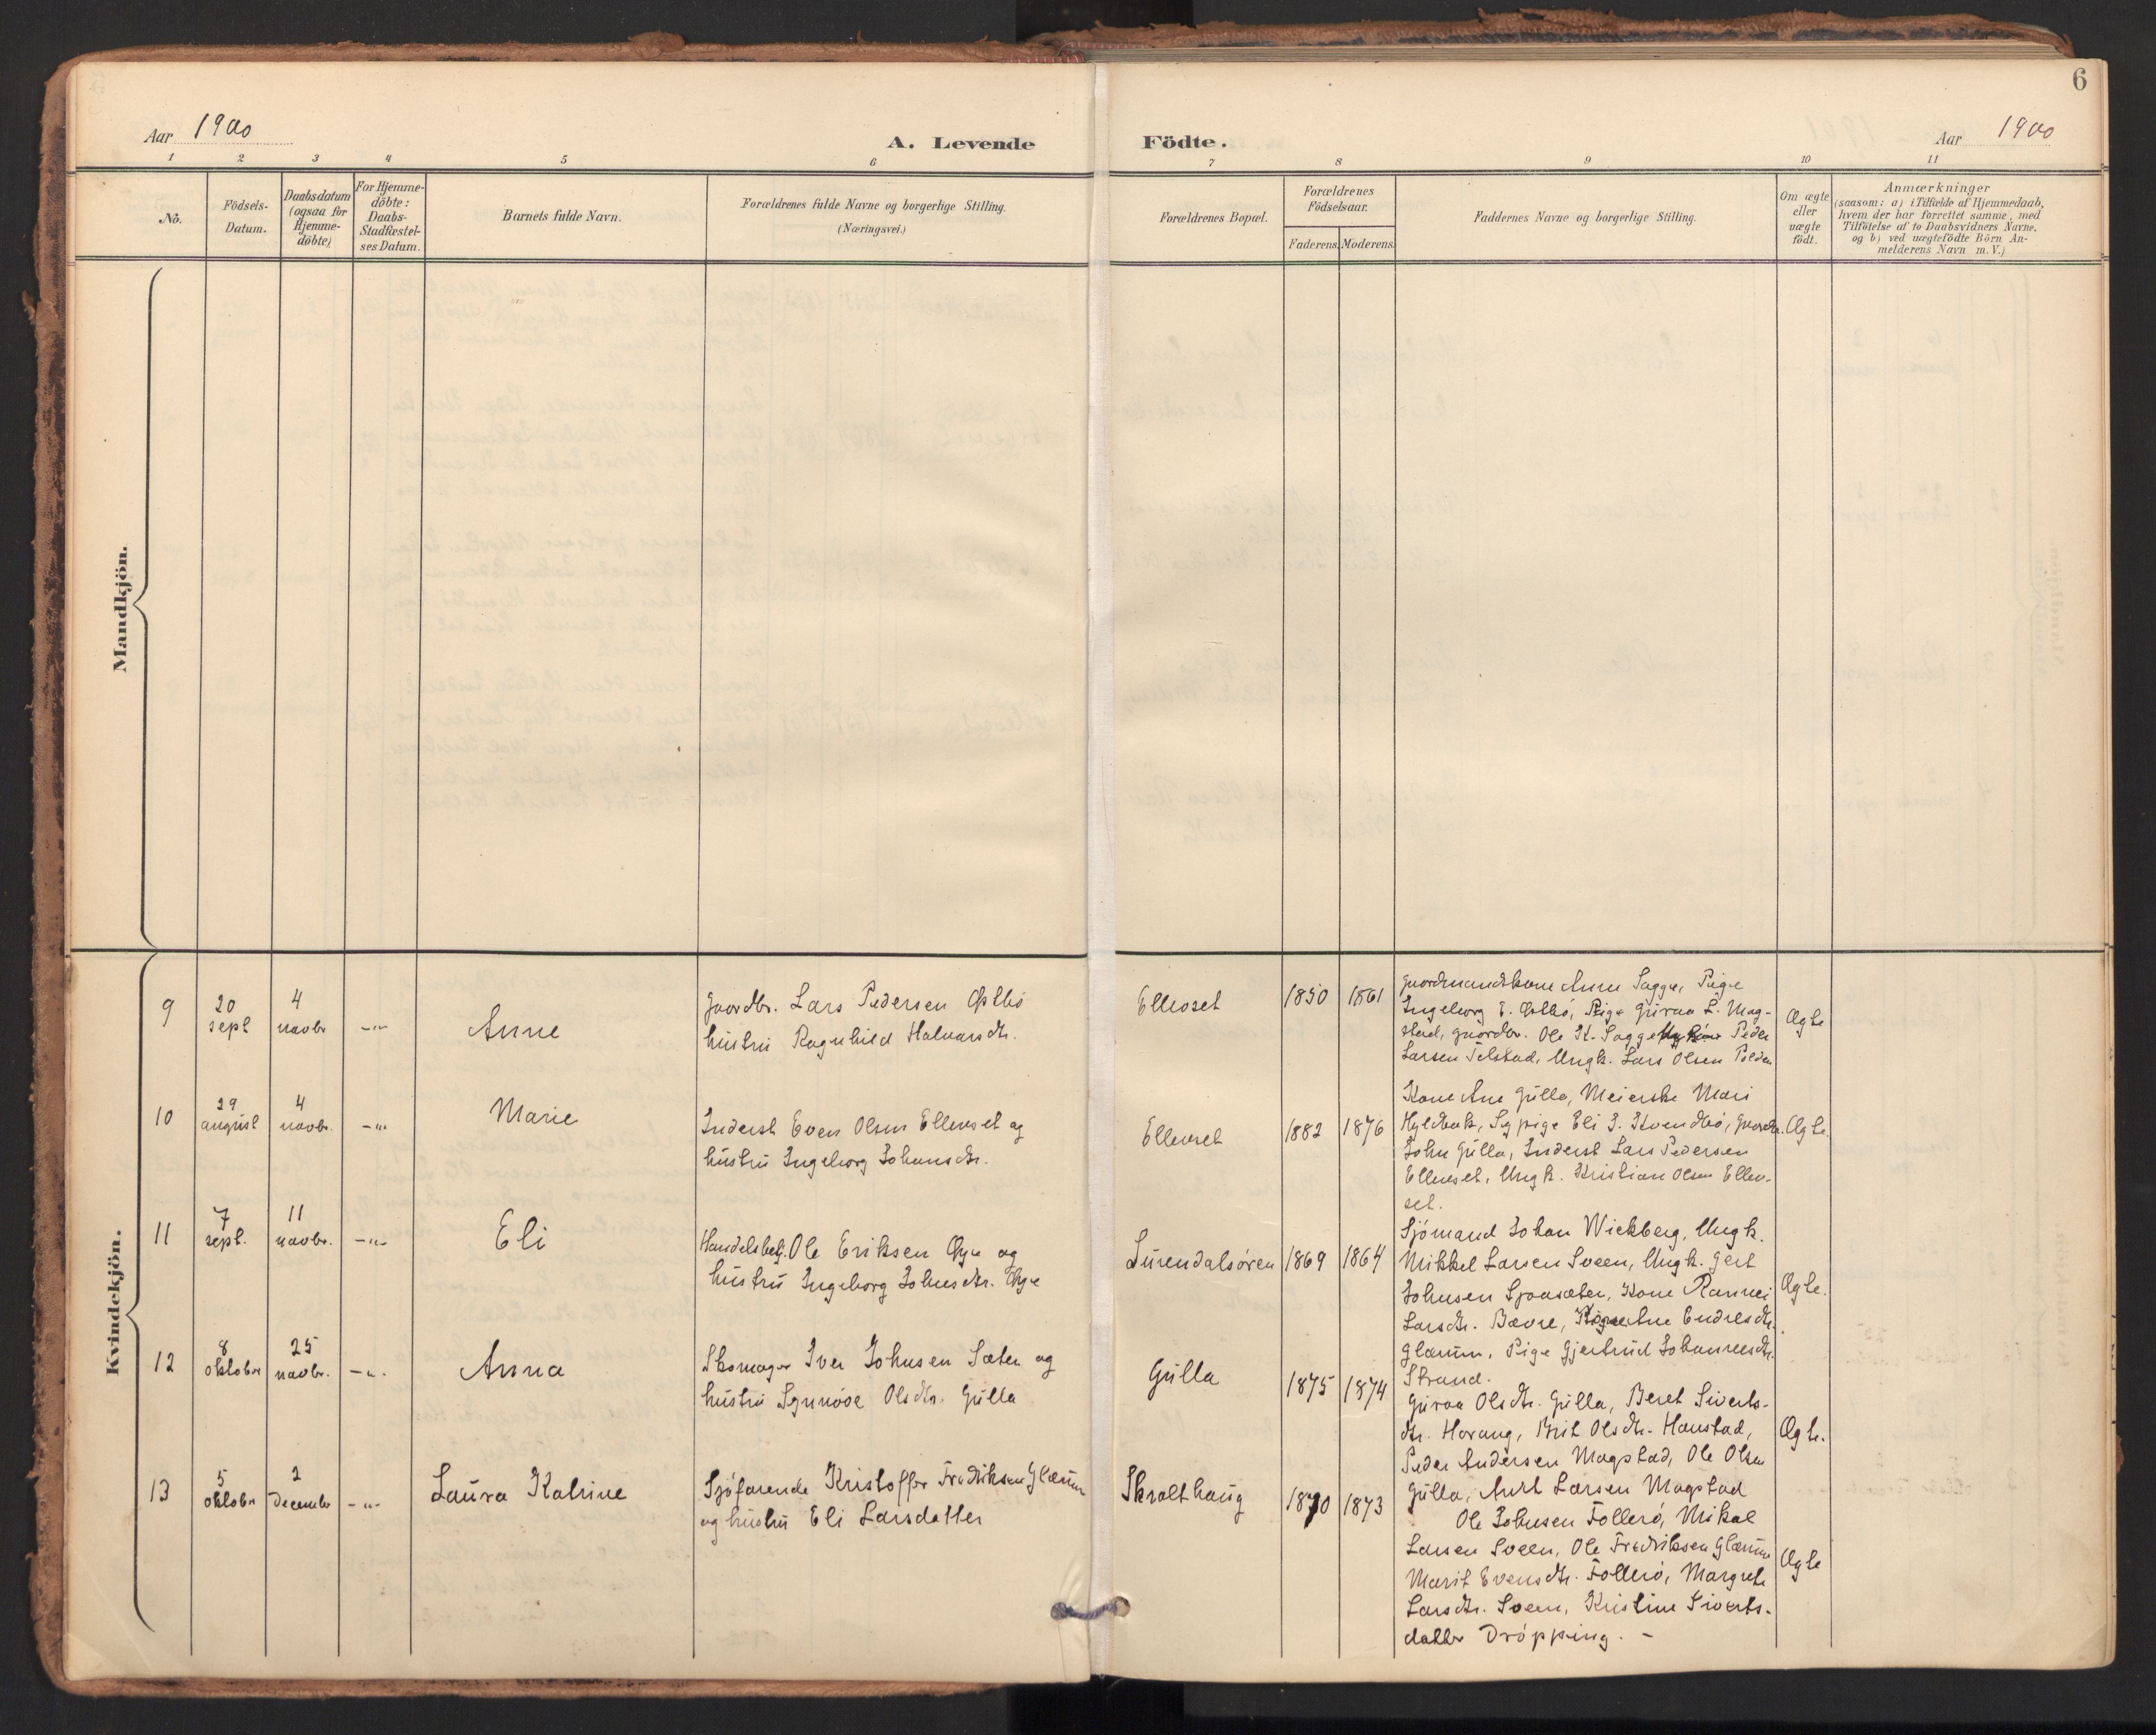 6
Aar 1900
A. Levende
Födte.
Aar 1900
1 2 3 4 5 6 7 8 9 10 11
No.
Födsels-
Datum.
Daabsdatum
(ogsaa for
Hjemme-
döbte)
For Hjemme-
döbte:
Daabs-
Stadfæstel-
ses Datum.
Barnets fulde Navn.
Forældrenes fulde Navne og borgerlige Stilling.
(Næringsvei.)
Forældrenes Bopæl.
Forældrenes
Födselsaar.
Faderens.
Moderens.
Faddernes Navne og borgerlige Stilling.
Om ægte
eller
uægte
födt.
Anmærkninger
(saasom: a) i Tilfælde af Hjemmedaab,
hvem der har forrettet samme, med
Tilföielse af to Daabsvidners Navne.
og b) ved uægtefödte Börn An-
melderens Navn m. V.)
Mandkjön.
Kvindekjön.
9
20
sept
4
novbr
-"-
Anne
Gaardbr. Lars Pedersen Østbö
hustru Ragnhild Halvorsdtr.
Ellevset
1850
1861
Gaardmandskone Anne Sagge, Pige
Ingeborg E. Østbö, Pige Guroa L. Mog-
stad, gaardbr. Ole K. Sagge Peder
Larsen Telstad, Ungk. Lars Olsen Polden
Ægte
10
29
august
4
novbr.
-"-
Marie
Inderst Even Olsen Ellevset og
hustru Ingeborg Johansdtr.
Ellevset
1882
1876
Kone Ane Gulla, Meierske Mari
Hyldbak, Sypige Eli J. Kvendbö, Gaardbr.
John Gulla, Inderst Lars Pedersen
Ellevset, Ungk. Kristian Olsen Ellev-
set.
Ægte.
11
7
sept.
11
novbr.
-"-
Eli
Handelsbetj. Ole Eriksen Øye og
hustru Ingeborg Johnsdtr. Øye
Surendalsøren
1869
1864
Sjömand Johan Wickberg, Ungk.
Mikkel Larsen Sveen, Ungk. Gert
Johnsen Sjoasæter, Kone Rannei
Larsdtr. Bævre, Pige Ane Endresdtr.
Glærum, Pige Gjertrud Johannesdtr.
Strand.
Ægte.
12
8
oktober
25
novbr.
-"-
Anna
Skomager Iver Johnsen Sæter og
hustru Synnöve Olsdtr. Gulla
Gulla
1875
1874
Guroa Olsdtr. Gulla, Beret Siverts-
dtr. Harang, Brit Olsdtr. Haustad,
Peder Andersen Mogstad, Ole Olsen
Gulla, Arnt Larsen Mogstad
Ægte.
13
5
oktober
2
December
-"-
Laura Katrine
Sjöfarende Kristoffer Fredriksen Glærum
og hustru Eli Larsdatter
Skralthaug
1870
1873
Ole Johnsen Follerö, Mikal
Larsen Sveen, Ole Fredriksen Glærum
Marit Evensdtr. Follerö, Margrete
Larsdtr. Sveen, Kristine Siverts-
datter Dröpping. -
Ægte